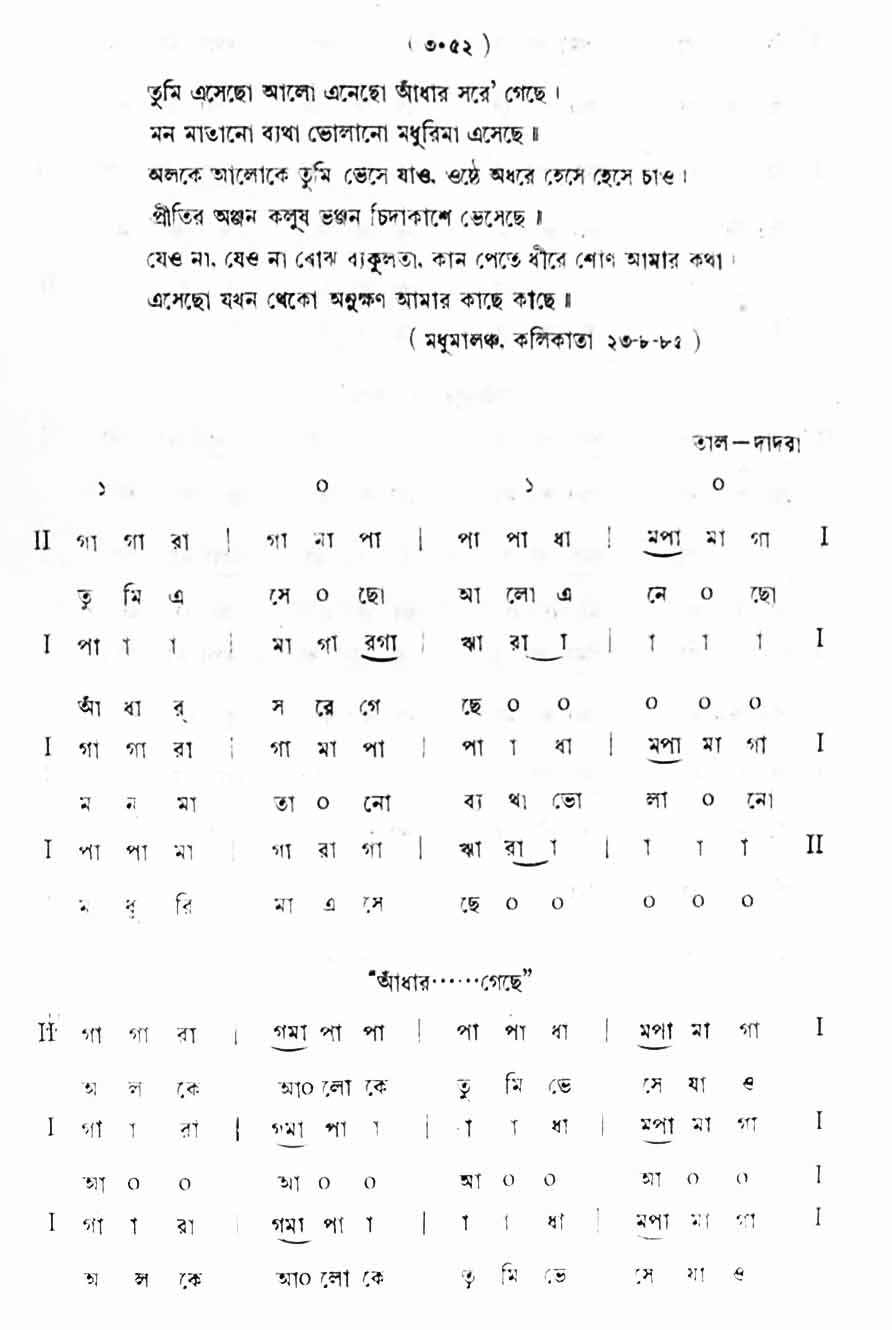 ( ৩০৫২ )
তুমি এসেছো আলো এনেছো আঁধার সরে' গেছে ।
মন মাতানো ব্যথা ভোলানো মধুরিমা এসেছে ॥
অলকে আলোকে তুমি ভেসে যাও, ওষ্ঠে অধরে হেসে হেসে চাও ।
প্রীতির অঞ্জন কলুষ ভঞ্জন চিদাকাশে ভেসেছে ॥
যেও না, যেও না বোঝ ব্যকুলতা, কান পেতে ধীরে শোণ আমার কথা ।
এসেছো যখন থেকো অনুক্ষণ আমার কাছে কাছে ॥
( মধুমালঞ্চ, কলিকাতা ২৩-৮-৮৫ )
তাল—দাদরা
১ ০ ১ ০
II গা গা রা | গা মা পা | পা পা ধা | মপা মা গা I
তু মি এ সে ০ ছো আ লো এ নে ০ ছো
I পা া া | মা গা রগা | ঋা রা া | া া া I
আঁ ধা র্ স রে গে ছে ০ ০ ০ ০ ০
I গা গা রা | গা মা পা | পা া ধা | মপা মা গা I
ম ন মা তা ০ নো ব্য থা ভো লা ০ নো
I পা পা মা | গা রা গা | ঋা রা া | া া া II
ম ধু রি মা এ সে ছে ০ ০ ০ ০ ০
“আঁধার······গেছে”
II গা গা রা | গমা পা পা | পা পা ধা | মপা মা গা I
অ ল কে আ০ লো কে তু মি ভে সে যা ও
I গা া রা | গমা পা া | া া ধা | মপা মা গা I
আ ০ ০ আ ০ ০ আ ০ ০ আ ০ ০ I
I গা া রা | গমা পা া | া া ধা | মপা মা গা I
অ ল কে আ০ লো কে তু মি ভে সে যা ও